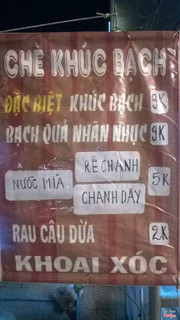 CHÈ KHÚC BẠCH
ĐẶC BIỆT KHÚC BẠCH 9K
BẠCH QUẢ NHÃN NHỤC 9K
NƯỚC MÍA RỄ CHANH 5K
CHANH DÂY
RAU CÂU DỪA 2K
KHOAI XÓC